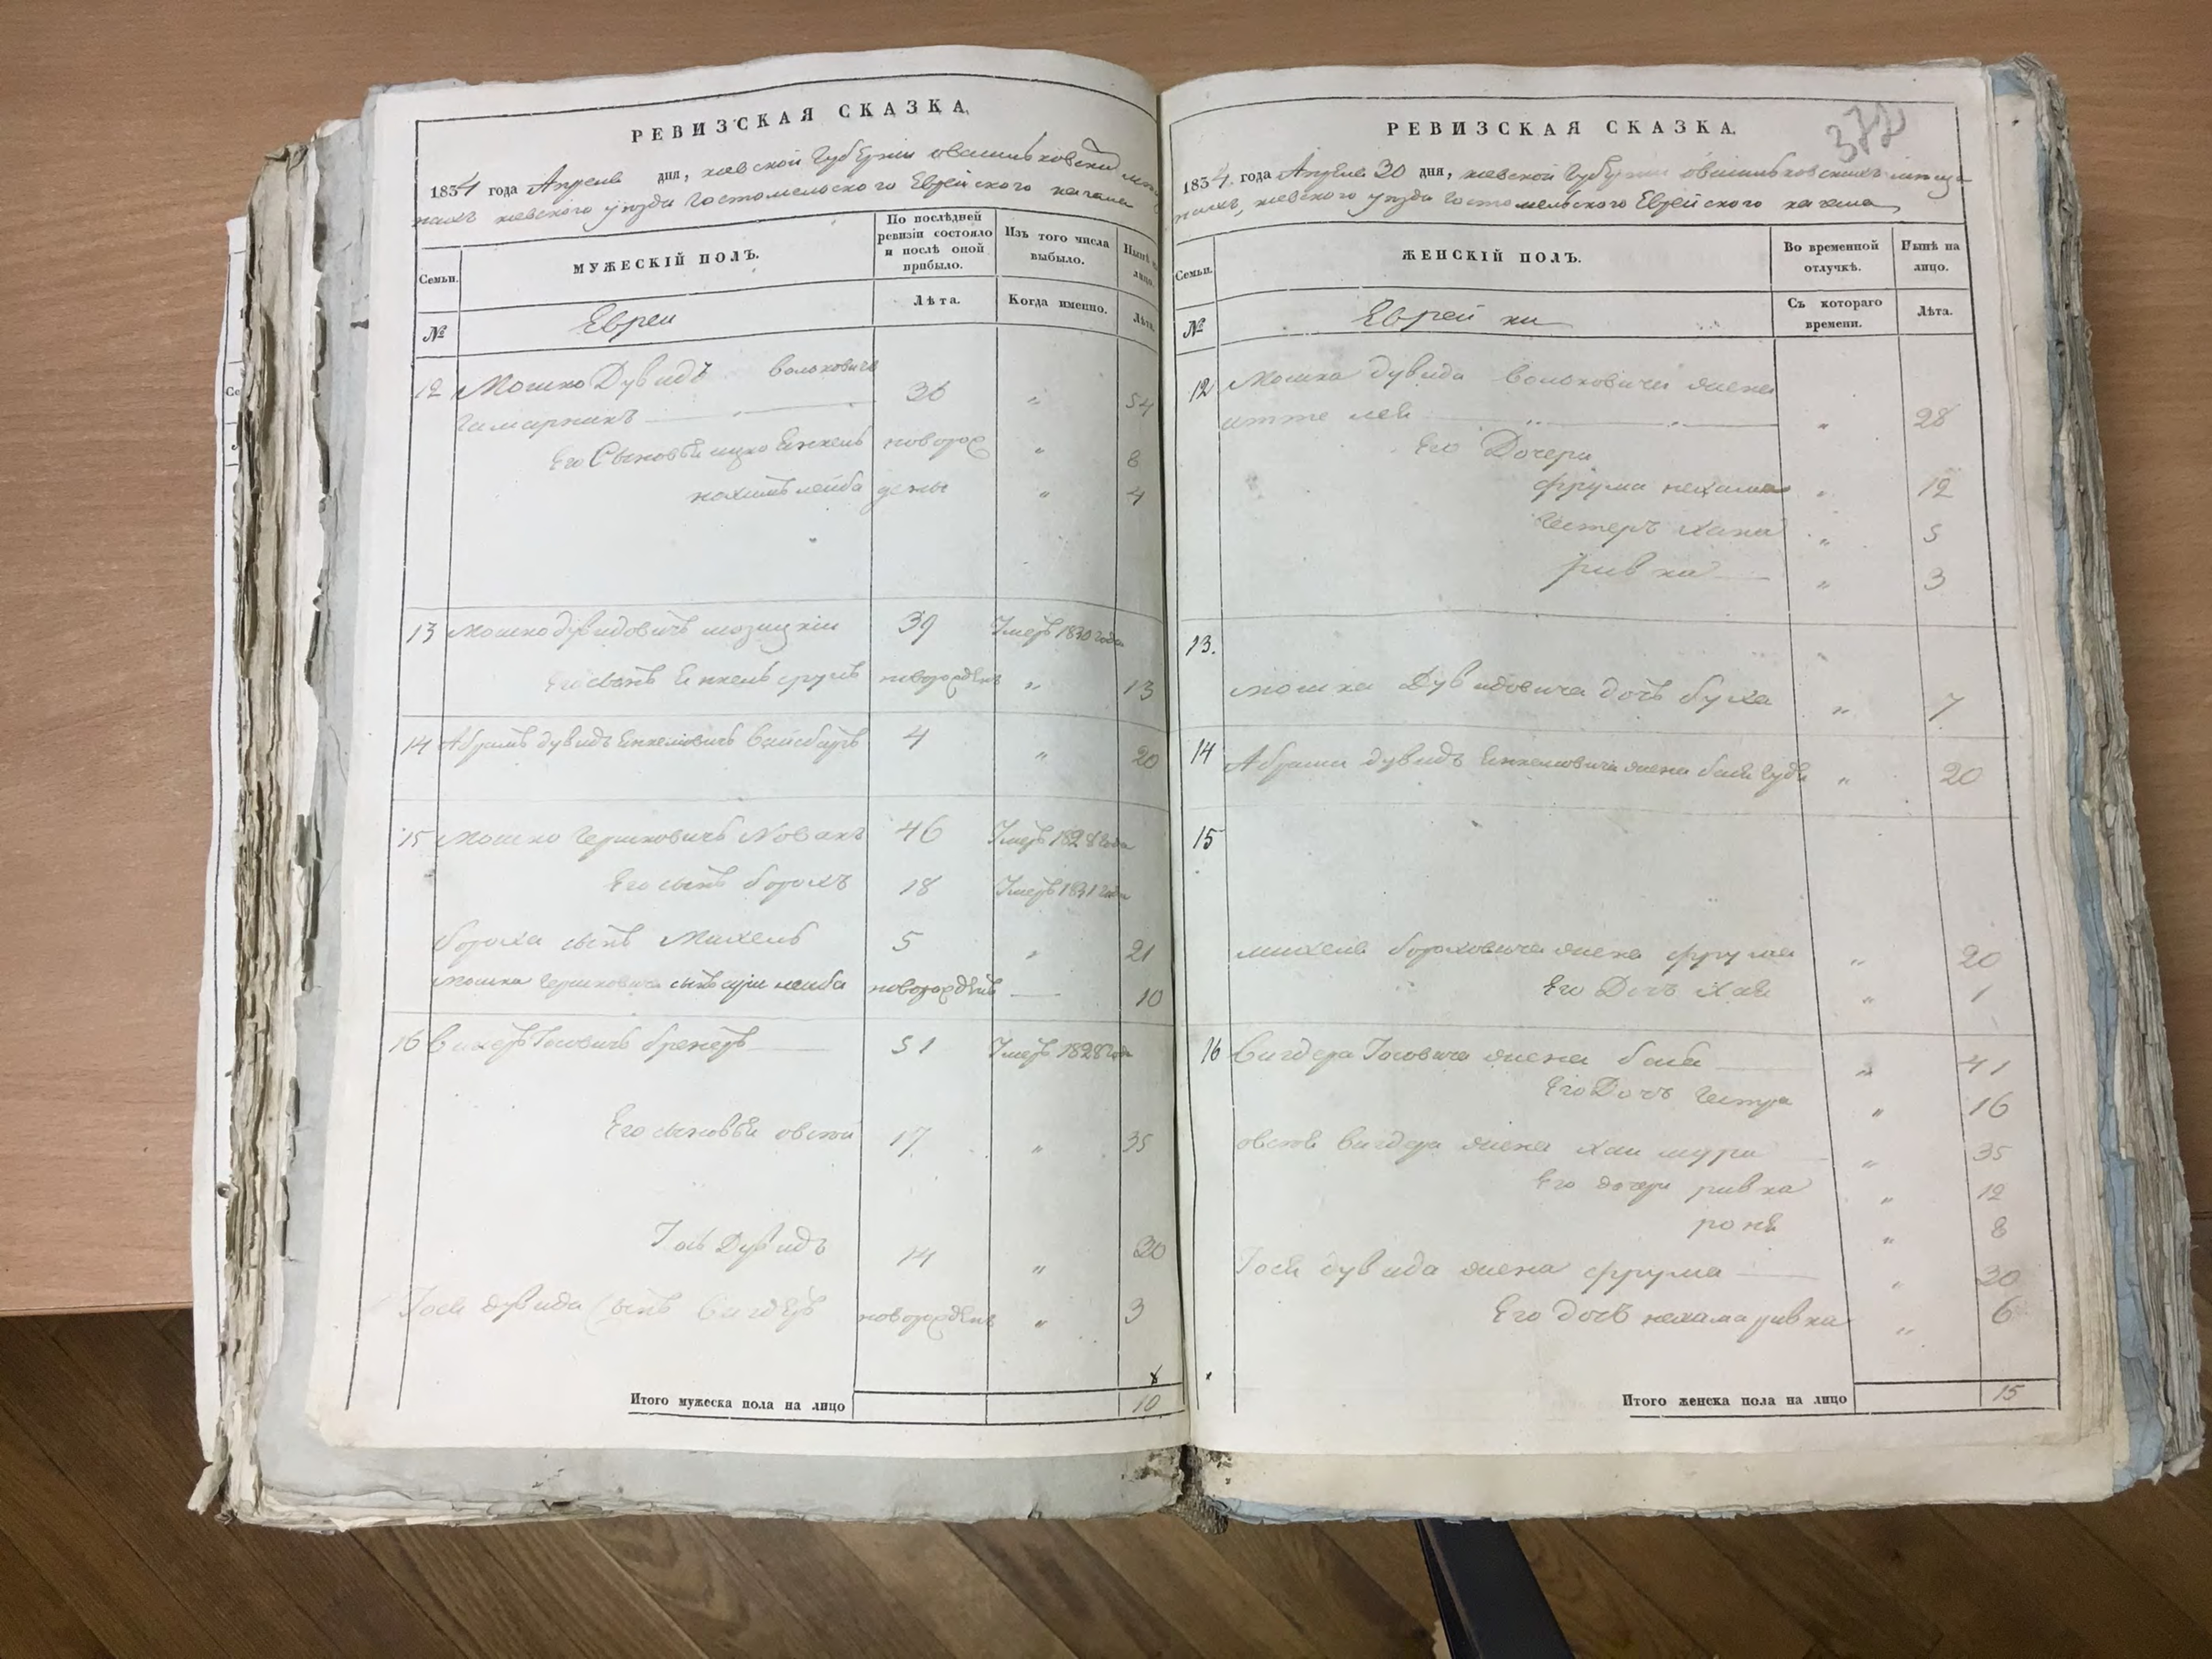 РЕВИЗСКАЯ СКАЗКА.
1834 года Апреля дня, киевской Губернии
киевского уезда Гостомельского Еврейского кагала
Семьи.
МУЖЕСКІЙ ПОЛЪ.
По послѣдней ревизіи состояло и послѣ оной прибыло.
Изъ того числа выбыло.
Нынѣ на лицо.
№
Евреи
Лѣта.
Когда именно.
Лѣта.
12 Мошко Дувидъ Вольковичъ
36 " 54
Его Сыновья ицко Янкель новорож " 8
нохимъ лейба дены " 4
13 Мошко дувидовичъ 39 Умеръ 1830 года
Его сынъ Янкель новорожденъ " 13
14 Абрамъ дувидъ Янкелiовичъ 4 " 20
15 Мошко Гершковичъ Новакъ 46 Умеръ 1828 года
Его сынъ борохъ 18 Умеръ 1831 года
бороха сынъ Михель 5 " 21
Мошка Гершковича сынъ лейба новорожденъ — 10
16 Іосовичъ 51 Умеръ 1828 года
Его сыновья овсей 17 " 35
Іось Дувидъ 14 " 30
Іося дувида сынъ Вигдеръ новорожденъ " 3
Итого мужеска пола на лицо 10
РЕВИЗСКАЯ СКАЗКА.
1834. года Апреля 30 дня, киевской Губернии
киевского уезда Гостомельского Еврейского кагала
Семьи.
ЖЕНСКІЙ ПОЛЪ.
Во временной отлучкѣ.
Нынѣ на лицо.
№
Еврейки
Съ котораго времени.
Лѣта.
12 Мошка дувида Вольковича жена
лея " 28
Его Дочери
фрума нехама " 12
Гестеръ хана " 5
ривка " 3
13.
мошка Дувидовича дочь буха " 7
14 Абрама дувидъ Янкелiовича жена " 20
15
михеля бороховича жена фрума " 20
Его Дочь хая " 1
16 Вигдера Іосовича жена баба " 41
Его Дочь Гестра " 16
овсея Вигдера жена хая " 35
Его дочери ривка " 12
роня " 8
Іося дувида жена фрума " 30
Его дочь нехама ривка " 6
Итого женска пола на лицо 15